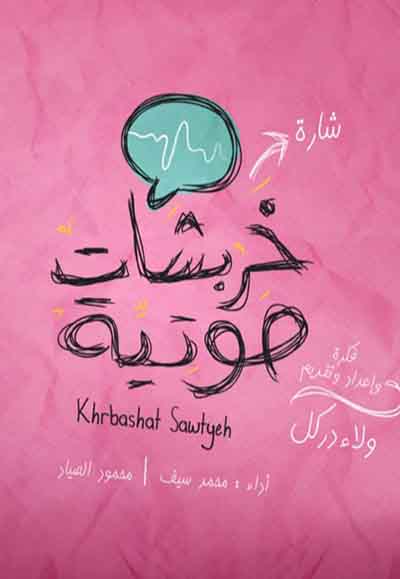 شارة
خربشات
صوتية
Khrbashat Sawtyeh
فكرة
وإعداد وتقديم
ولاء دركل
أداء : محمد سيف | محمود الصياد